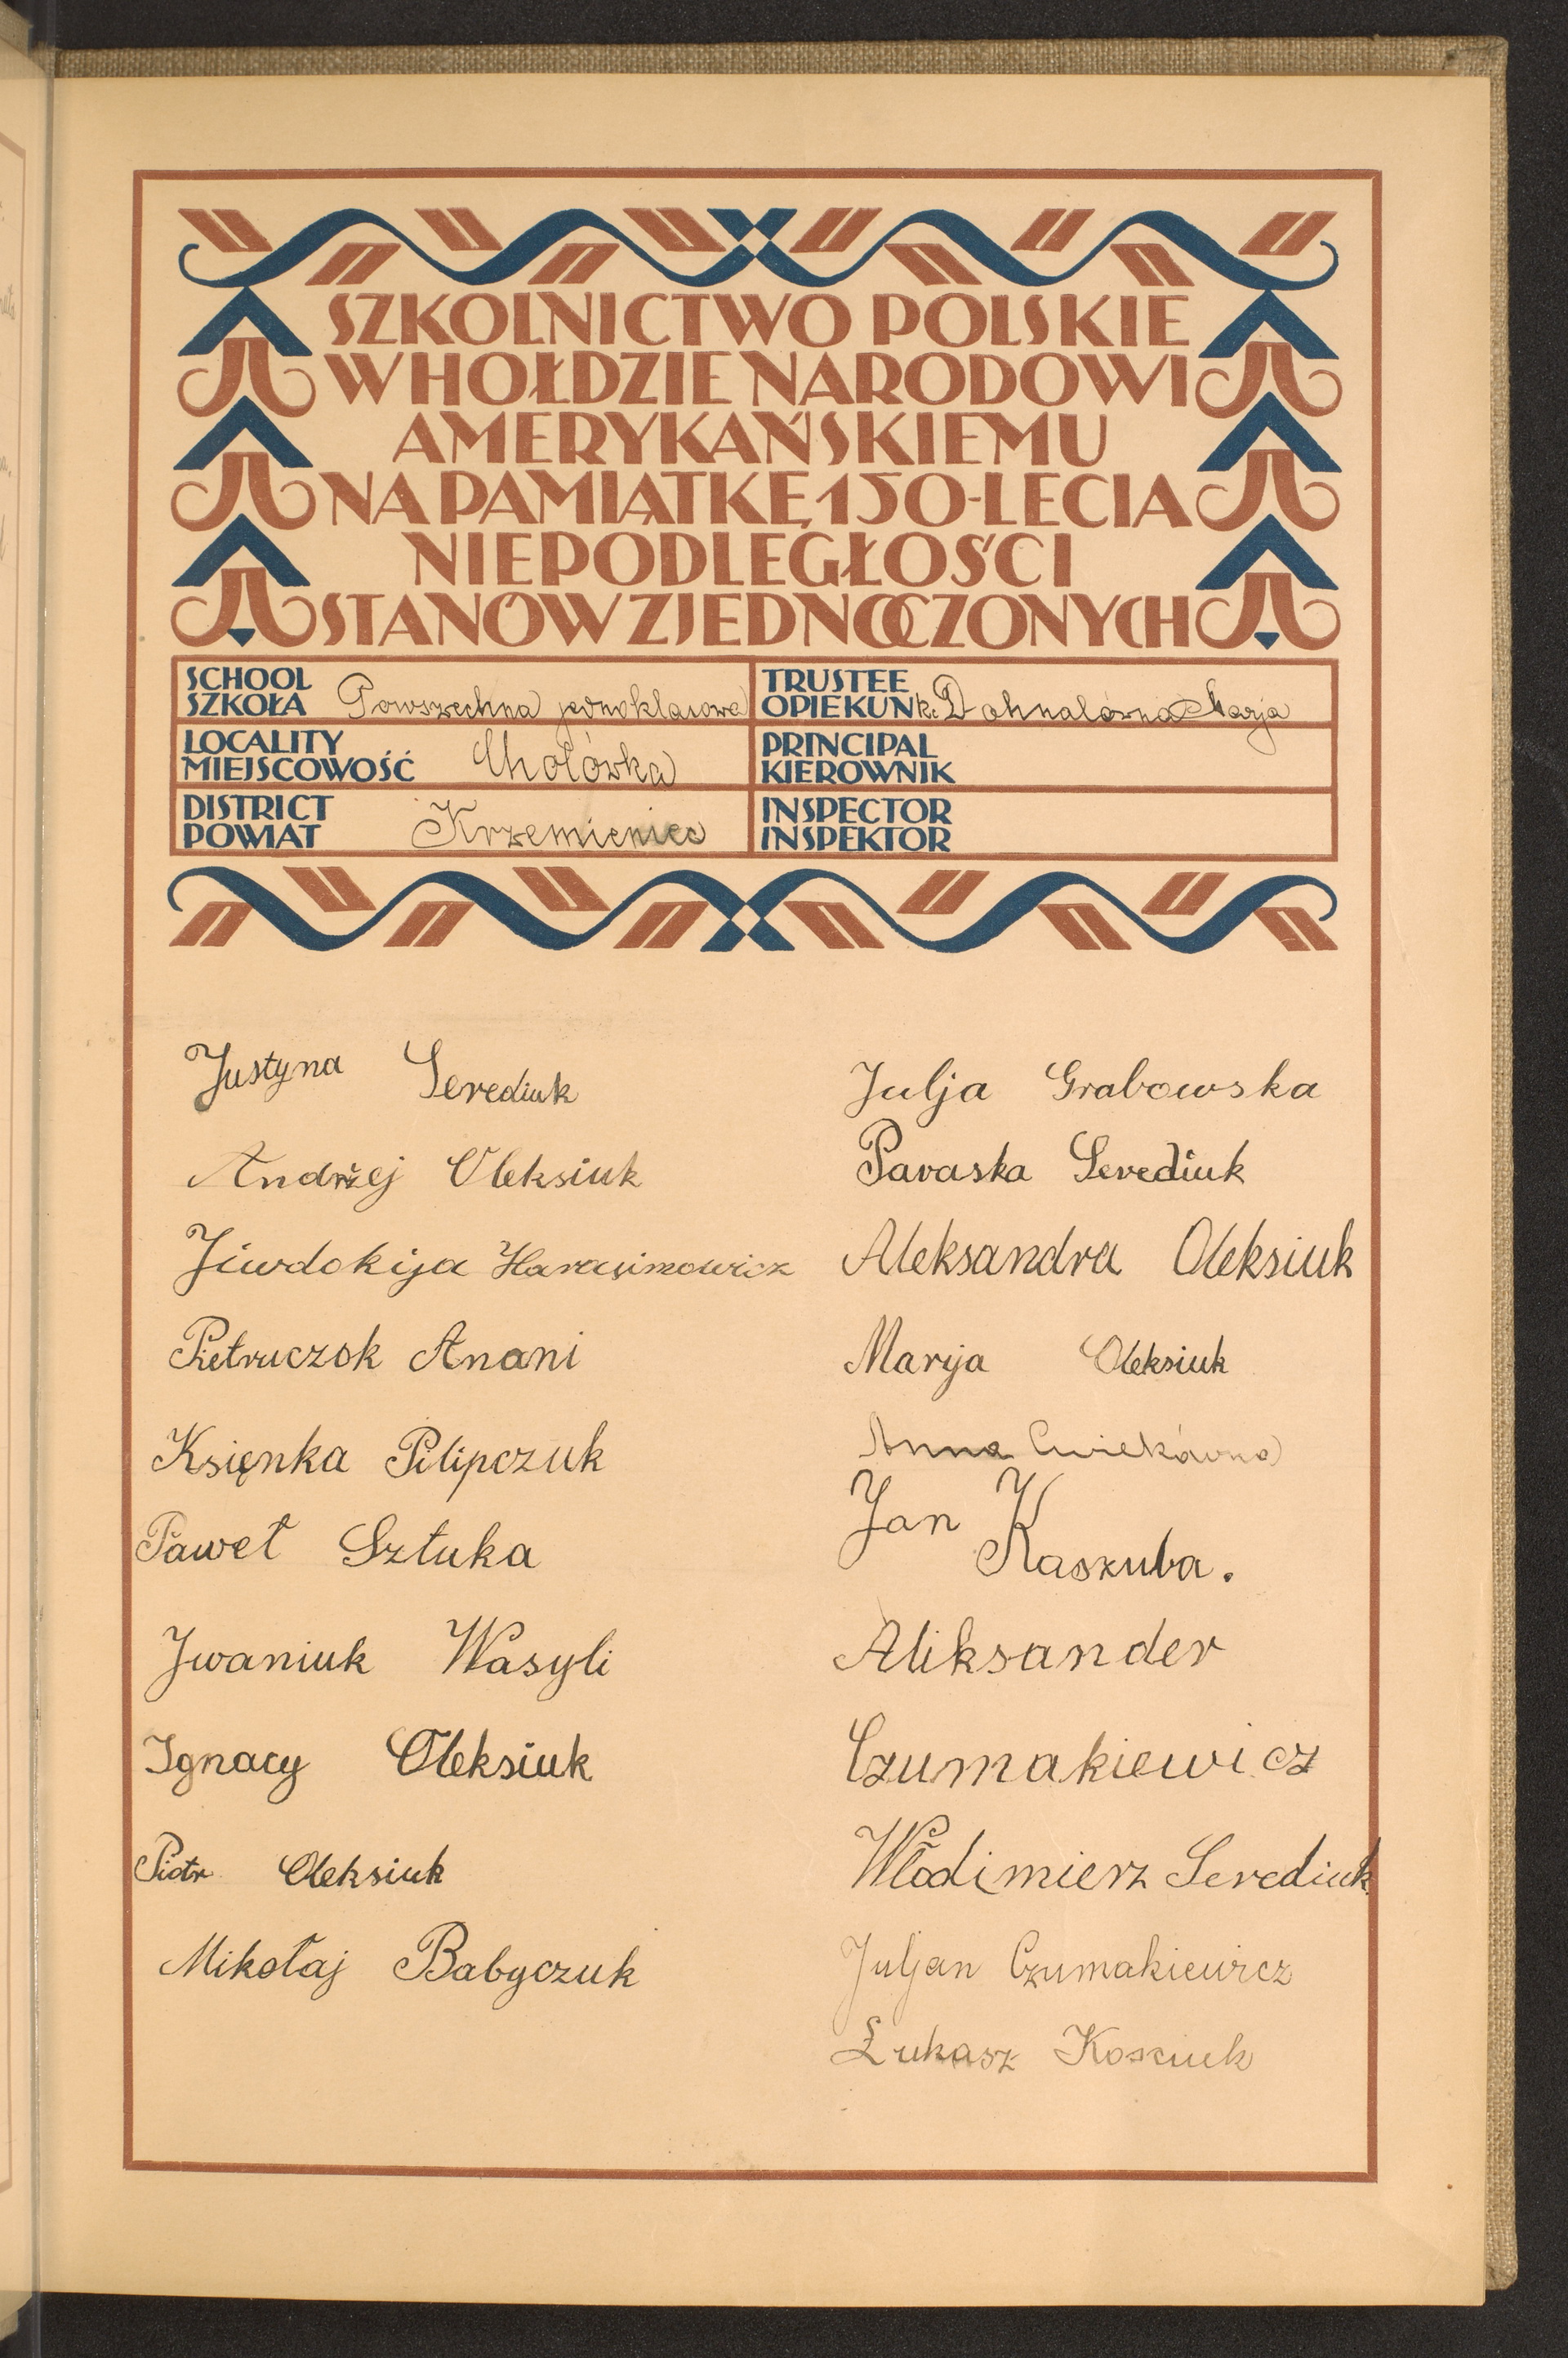 SZKOLNICTWO POLSKIE
W HOŁDZIE NARODOWI
AMERYKAŃSKIEMU
NA PAMIĄTKĘ 150-LECIA
NIEPODLEGŁOŚCI
STANÓW ZJEDNOCZONYCH
SCHOOL
SZKOŁA Powszechna jednoklasowa
TRUSTEE
OPIEKUNka Dohnalówna Marja
LOCALITY
MIEJSCOWOŚĆ Chotówka
PRINCIPAL
KIEROWNIK
DISTRICT
POWIAT Krzemieniec
INSPECTOR
INSPEKTOR
Justyna Serediuk
Andrzej Oleksiuk
Jiwdokija Harasimowicz
Pietruczok Anani
Księnka Pilipczuk
Paweł Sztuka
Jwaniuk Wasyli
Ignacy Oleksiuk
Piotr Oleksiuk
Mikołaj Babyczuk
Julja Grabowska
Paraska Serediuk
Aleksandra Oleksiuk
Marija Oleksiuk
Anna Cwiekówna
Jan
Kaszuba.
Aliksander
Czumakiewicz
Włodimierz Serediuk
Juljan Czumakiewicz
Łukasz Kosciuk